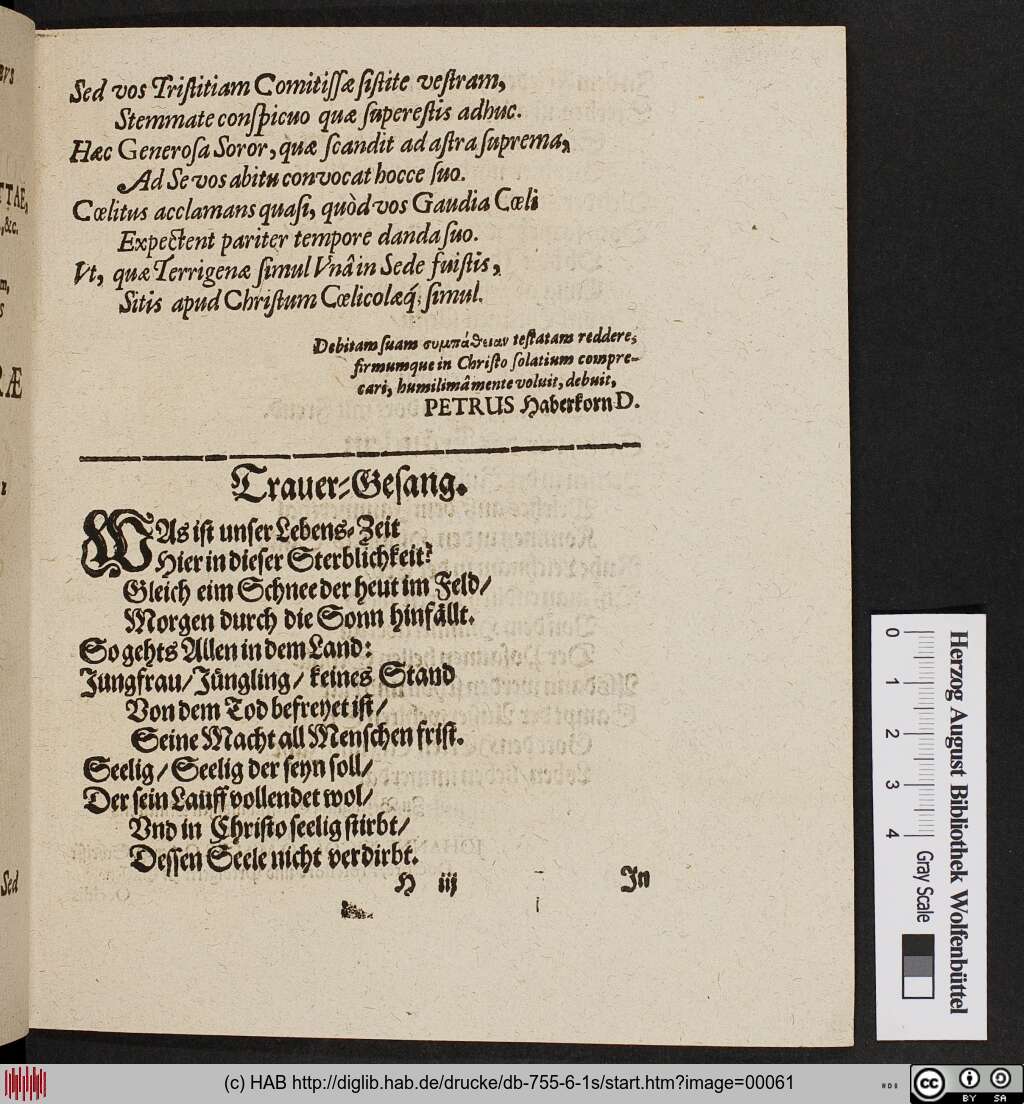 Sed vos Tristitiam Comitissæ sistite vestram,
Stemmate conspicuo quæ superestis adhuc.
Hæc Generosa Soror, quæ scandit ad astra suprema,
Ad Se vos abitu convocat hocce suo.
Cœlitus acclamans quasi, quòd vos Gaudia Cœli
Expectent pariter tempore danda suo.
Vt, quæ Terrigenæ simul Vnâ in Sede fuistis,
Sitis apud Christum Cœlicolæq; simul.
Debitam suam συμπάθειαν testatam reddere,
firmumque in Christo solatium compre-
cari, humilimâ mente voluit, debuit,
PETRUS Haberkorn D.
Trauer-Gesang.
WAs ist unser Lebens-Zeit
Hier in dieser Sterblichkeit?
Gleich eim Schnee der heut im Feld/
Morgen durch die Sonn hinfällt.
So gehts Allen in dem Land:
Jungfrau/ Jüngling/ keines Stand
Von dem Tod befreyet ist/
Seine Macht all Menschen frist.
Seelig/ Seelig der seyn soll/
Der sein Lauff vollendet wol/
Vnd in Christo seelig stirbt/
Dessen Seele nicht verdirbt.
H iij In
TTAE,
,&c.
RÆ
Sed
0 1 2 3 4 Gray Scale
Herzog August Bibliothek Wolfenbüttel
(c) HAB http://diglib.hab.de/drucke/db-755-6-1s/start.htm?image=00061
cc BY SA